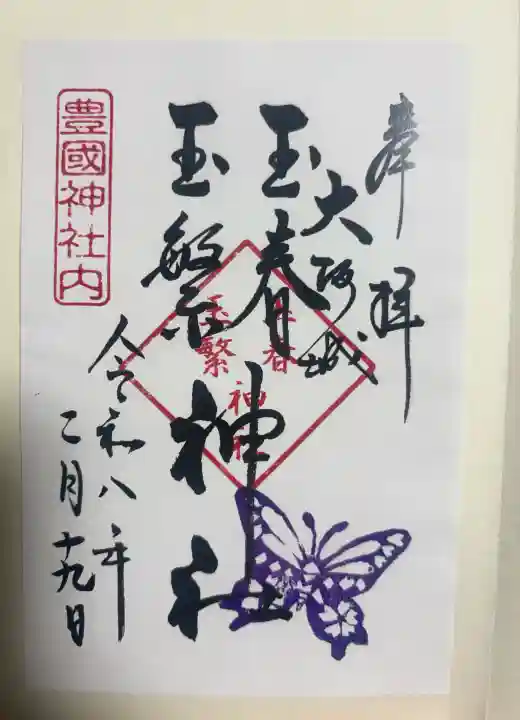 奉拝
大阪城
玉春
玉繁
神社
玉春
玉繁
神社
令和八年
二月十九日
豊國神社内